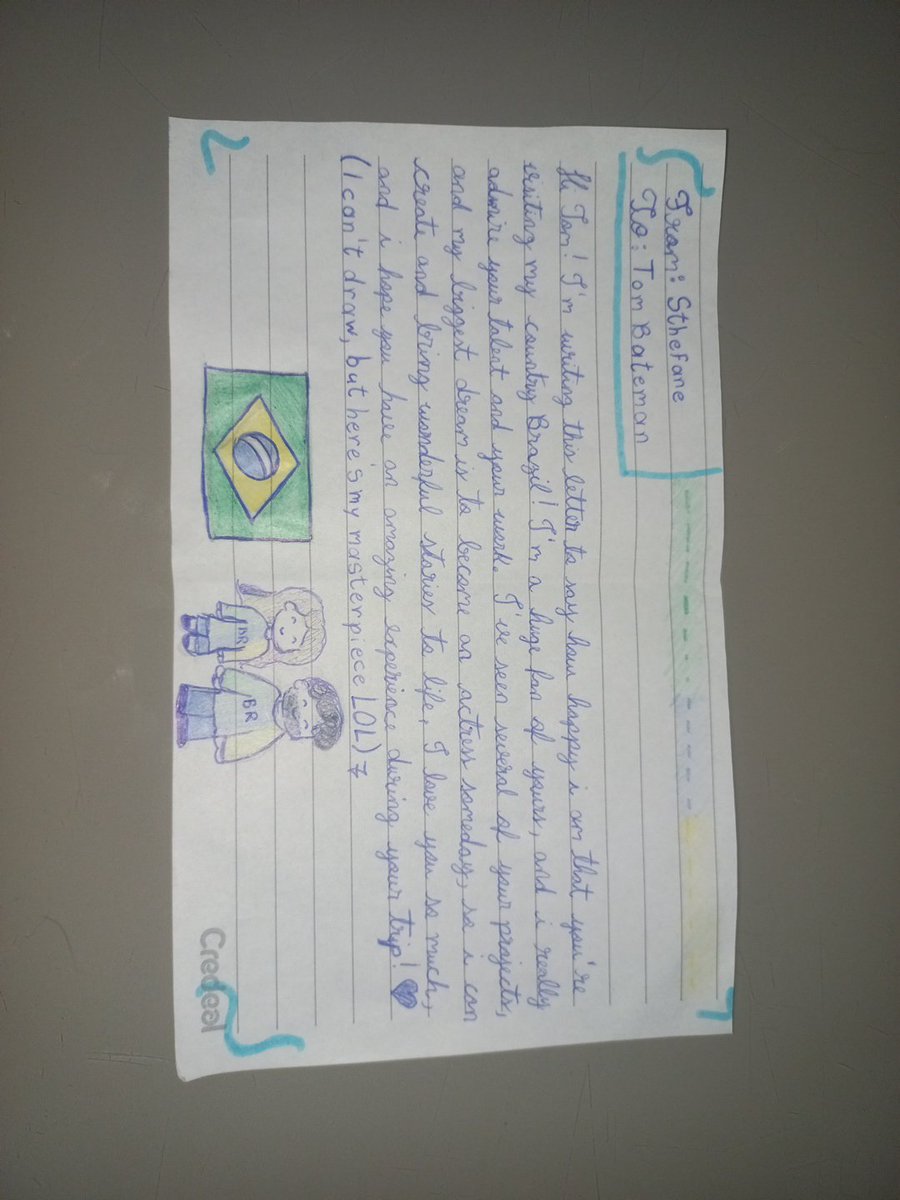 From: Sthefane
To: Tom Bateman
Hi Tom! I'm writing this letter to say how happy i am that you're
visiting my country Brazil! I'm a huge fan of yours, and i really
admire your talent and your work. I've seen several of your projects,
and my biggest dream is to become an actress someday, so i can
create and bring wonderful stories to life, I love you so much,
and i hope you have an amazing experience during your trip!
(I can't draw, but here's my masterpiece LOL)
BR
BR
Credeal